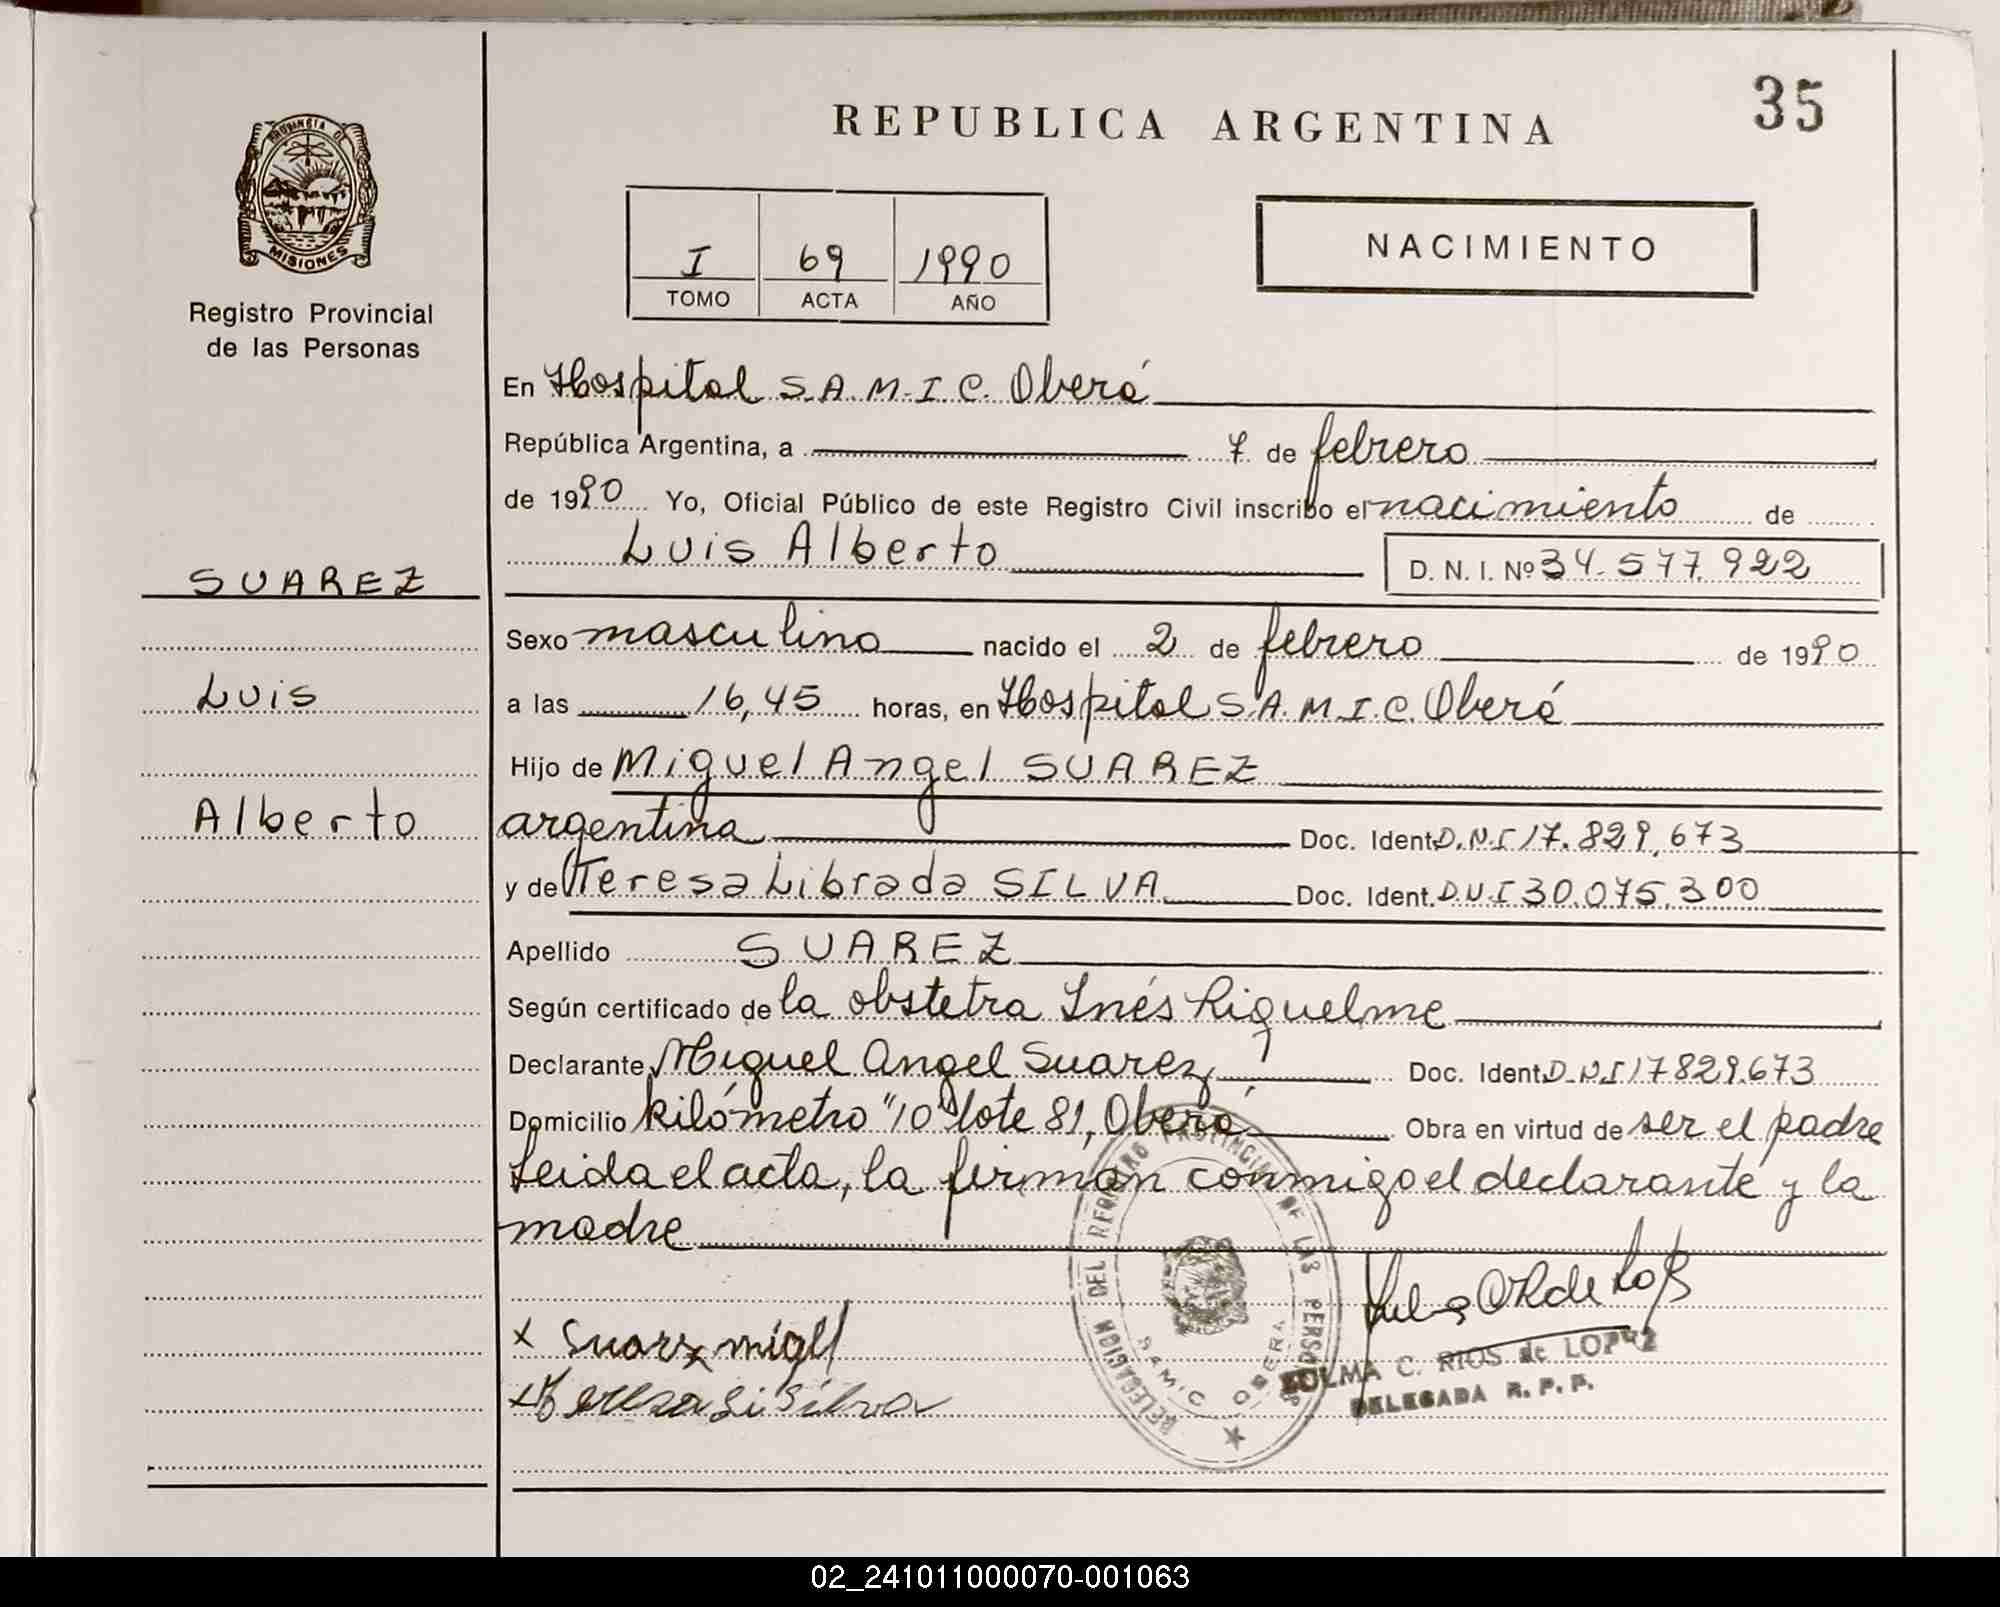 35
REPUBLICA ARGENTINA
PROVINCIA DE
MISIONES
Registro Provincial
de las Personas
I 69 1990
TOMO ACTA AÑO
NACIMIENTO
En Hospital S.A.M.I.C. Oberá
República Argentina, a 7 de febrero
de 1990 Yo, Oficial Público de este Registro Civil inscribo el nacimiento de
Luis Alberto D. N. I. Nº 34.577.922
SUAREZ
Luis
Alberto
Sexo masculino nacido el 2 de febrero de 1990
a las 16,45 horas, en Hospital S.A.M.I.C. Oberá
Hijo de Miguel Angel SUAREZ
argentina Doc. Ident. D.N.I 17.829.673
y de Teresa Librada SILVA Doc. Ident. D.N.I 30.075.300
Apellido SUAREZ
Según certificado de la obstetra Inés Riquelme
Declarante Miguel Angel Suarez Doc. Ident. D.N.I 17829.673
Domicilio kilómetro "10" lote 81, Oberá Obra en virtud de ser el padre
Leida el acta, la firman conmigo el declarante y la
madre
DELEGACION DEL REGISTRO PROVINCIAL DE LAS PERSONAS
SAMIC OBERA
x Suarez
x Teresa Li Silva
C. RIOS de LOPEZ
DELEGADA R. P. P.
02_241011000070-001063